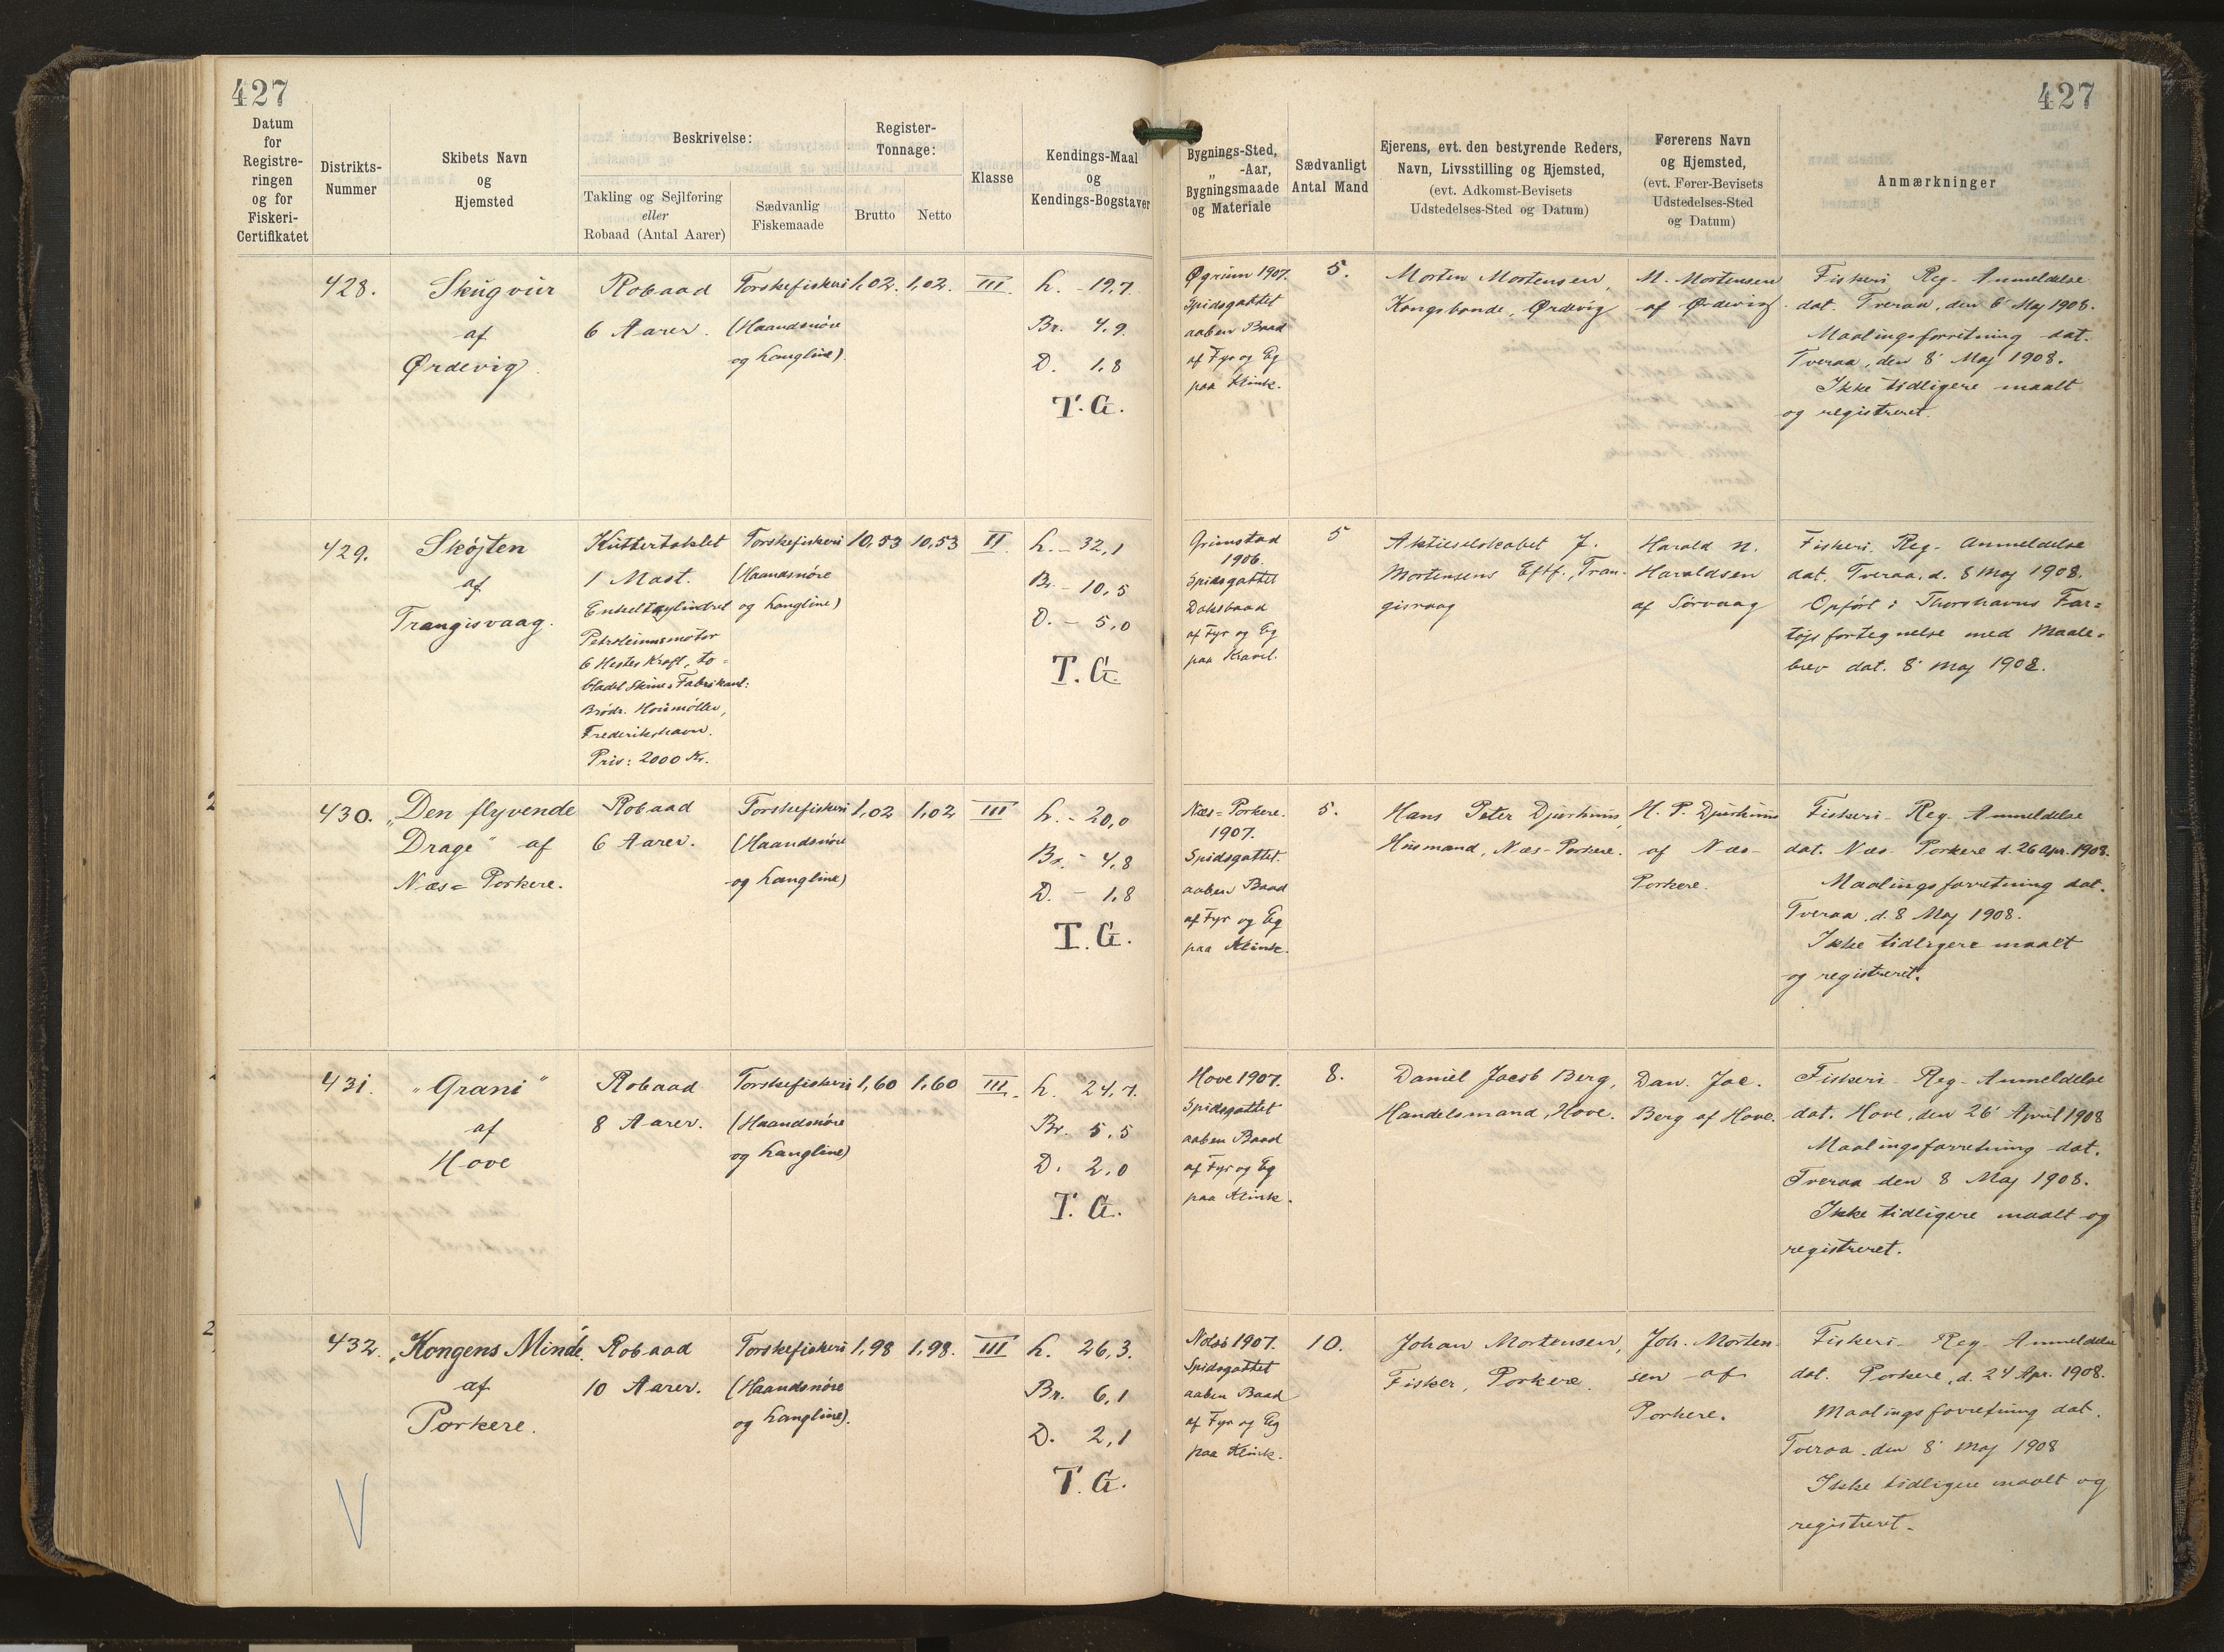 427
427
Datum
for
Registre-
ringen
og for
Fiskeri-
Certifikatet
Distrikts-
Nummer
Skibets Navn
og
Hjemsted
Beskrivelse:
Takling og Sejlføring
eller
Robaad (Antal Aarer)
Sædvanlig
Fiskemaade
Register-
Tonnage:
Brutto
Netto
Klasse
Kendings-Maal
og
Kendings-Bogstaver
Bygnings-Sted,
„ -Aar,
Bygningsmaade
og Materiale
Sædvanligt
Antal Mand
Ejerens, evt. den bestyrende Reders,
Navn, Livsstilling og Hjemsted,
(evt. Adkomst-Bevisets
Udstedelses-Sted og Datum)
Førerens Navn
og Hjemsted,
(evt. Fører-Bevisets
Udstedelses-Sted
og Datum)
Anmærkninger
428.
Skúgvúr
af
Ørdevig.
Robaad
6 Aarer.
Torskefiskeri
(Haandsnøre
og Langline).
1,02.
1,02.
III.
L. - 19,7
Br. 4,9.
D. 1,8
T.G.
Øgrim 1907.
Spidsgattet
aaben Baad
af Fyr og Eg
paa Klink.
5.
Morten Mortensen,
Kongsbonde, Ørdevig
M. Mortensen
af Ørdevig
Fiskeri Reg- Anmeldelse
dat. Tveraa, den 6' Maj 1908.
Maalingsforretning dat.
Tveraa, den 8' Maj 1908.
Ikke tidligere maalt
og registreret.
429.
Skøjten
af
Trangisvaag.
Kuttertaklet
1 Mast.
Enkeltcylindret
Petroleumsmotor
6 Hestes Kraft, to=
bladet Skrue, Fabrikant:
Brødr. Houmøller,
Frederikshavn.
Pris: 2000 Kr.
Torskefiskeri
(Haandsnøre
og Langline)
10,53
10,53
II
L. - 32,1
Br. - 10,5
D. - 5,0
T.G.
Grimstad
1906.
Spidsgattet
Dæksbaad
af Fyr og Eg
paa Kravel.
5
Aktieselskabet J.
Mortensens Eftf., Tran-
gisvaag
Harald N.
Haraldsen
af Sørvaag
Fiskeri Reg- Anmeldelse
dat. Tveraa. d. 8 Maj 1908.
Opført i Thorshavns Far=
tøjsfortegnelse med Maale=
brev dat. 8' Maj 1908.
430.
„Den flyvende
Drage" af
Næs= Porkere.
Robaad
6 Aarer.
Torskefiskeri
(Haandsnøre
og Langline)
1,02
1,02
III
L. - 20,0
Br. - 4,8
D. - 1,8
T.G.
Næs= Porkere.
1907.
Spidsgattet.
aaben Baad
af Fyr og Eg
paa Klink.
5.
Hans Peter Djurhuus,
Husmand, Næs-Porkere.
H. P. Djurhuus
af Næs-
Porkere.
Fiskeri- Reg. Anmeldelse
dat. Næs- Porkere d. 26 Apr. 1908.
Maalingsforretning dat.
Tveraa. d. 8 Maj 1908.
Ikke tidligere maalt
og registreret.
431.
„Grani"
af
Hove
Robaad
8 Aarer.
Torskefiskeri
(Haandsnøre
og Langline)
1,60
1,60
III.
L. 24,7.
Br. 5,5
D. 2,0
T.G.
Hove 1907.
Spidsgattet
aaben Baad
af Fyr og Eg
paa Klink.
8.
Daniel Jacob Berg,
Handelsmand, Hove.
Dan. Jac.
Berg af Hove.
Fiskeri- Reg- Anmeldelse
dat. Hove, den 26' April 1908
Maalingsforretning dat.
Tveraa den 8 Maj 1908.
Ikke tidligere maalt og
registreret.
432.
„Kongens Minde"
af
Porkere.
Robaad
10 Aarer.
Torskefiskeri
(Haandsnøre
og Langline).
1,98
1,98.
III
L. 26,3.
Br. 6,1
D. 2,1
T.G.
Nolsø 1907.
Spidsgattet
aaben Baad
af Fyr og Eg
paa Klink.
10.
Johan Mortensen,
Fisker, Porkere.
Joh. Morten-
sen af
Porkere.
Fiskeri- Reg- Anmeldelse
dat. Porkere, d. 24 Apr. 1908.
Maalingsforretning dat.
Tveraa. den 8' Maj 1908
Ikke tidligere maalt og
registreret.